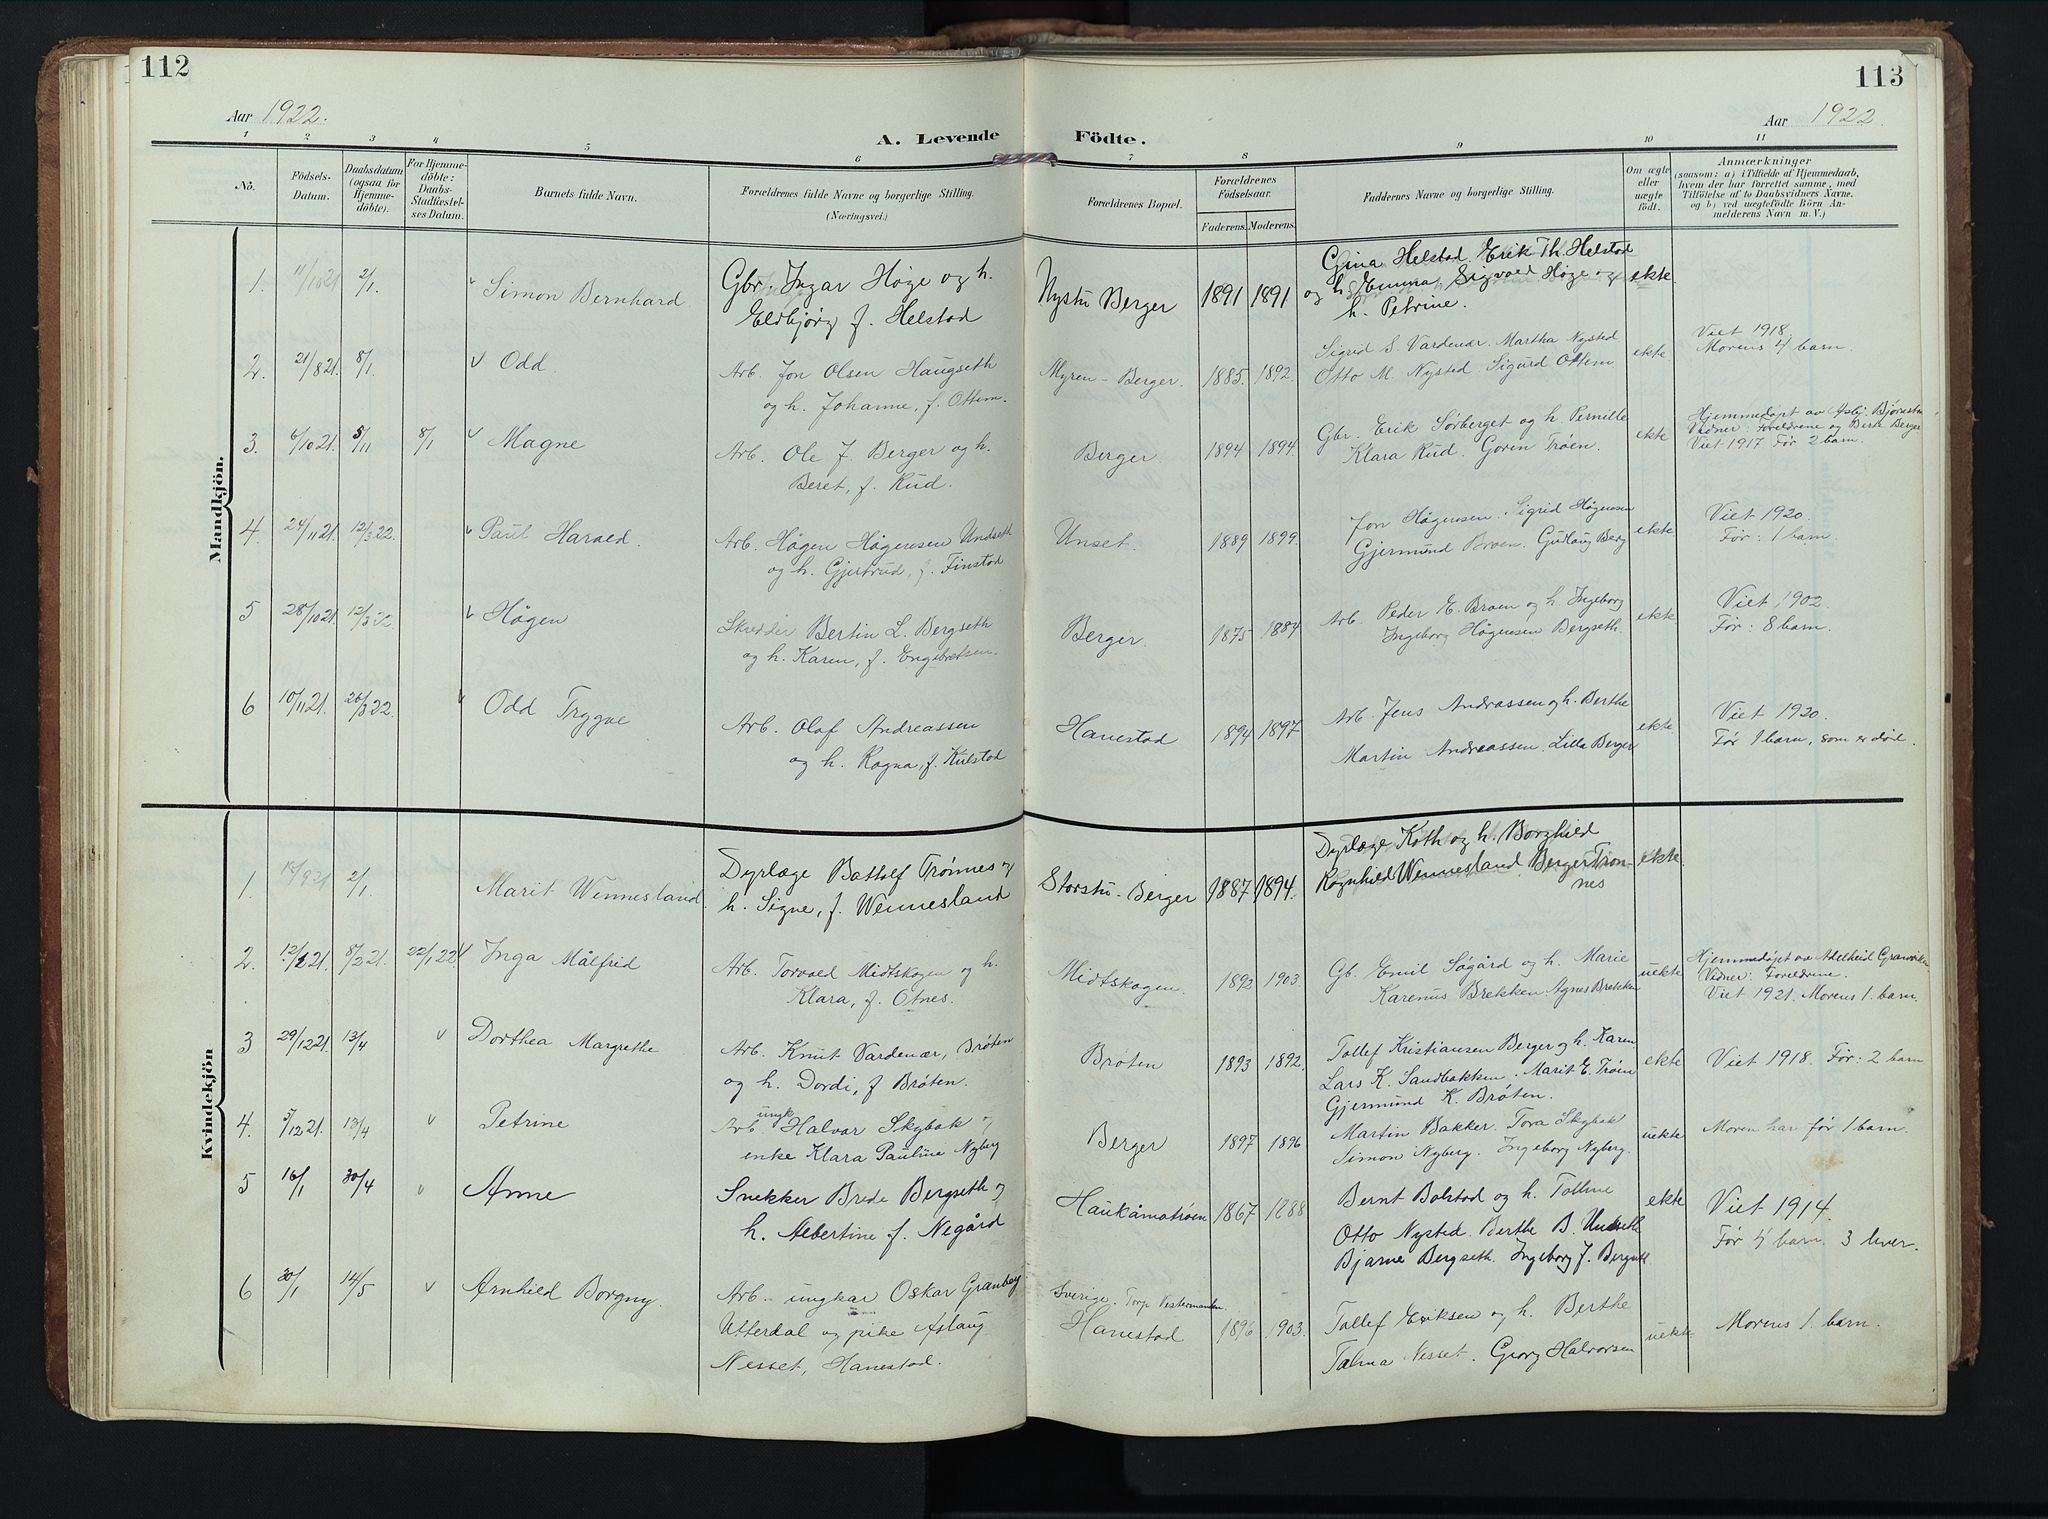 112
113
Aar 1922.
Aar 1922.
A. Levende Födte.
1 2 3 4 5 6 7 8 9 10 11
No.
Födsels-
Datum.
Daabsdatum
(ogsaa for
Hjemme-
döbte).
For Hjemme-
döbte:
Daabs-
Stadfæstel-
ses Datum.
Barnets fulde Navn.
Forældrenes fulde Navne og borgerlige Stilling.
(Næringsvei.)
Forældrenes Bopæl.
Forældrenes
Födselsaar.
Faderens. Moderens.
Faddernes Navne og borgerlige Stilling.
Om ægte
eller
uægte
födt.
Anmærkninger
(saasom: a) i Tilfælde af Hjemmedaab,
hvem der har forrettet samme, med
Tilföielse af to Daabsvidners Navne.
og b) ved uægtefödte Börn An-
melderens Navn m. V.)
Mandkjön.
1. 11/10 21 2/1. Simon Bernhard
Gbr. Ingar Høge og h.
Eldbjørg f. Helstad
Nystu Berger 1891 1891
Gina Helstad. Erik Th. Helstad
og h. Emma, Sigvald Høge og
h. Petrine.
ekte
2. 21/8 21. 8/1. Odd.
Arb. Jon Olsen Haugseth
og h. Johanne, f. Ottem.
Myren - Berger. 1885. 1892.
Sigrid S. Vardenær. Martha Nysted
Otto M. Nysted. Sigurd Ottem.
ekte
Viet 1918.
Morens 4 barn.
3. 6/10 21. 5/11 8/1 Magne
Arb. Ole J. Berger og h.
Beret, f. Rud.
Berger. 1894 1894.
Gbr. Erik Sørberget og h. Pernille
Klara Rud. Goren Trøen.
ekte
Hjemmedøpt av Asbj. Bjørestu
Vidner: Foreldrene og Berte Berger
Viet 1917 Før 2 barn.
4. 24/11 21. 12/3 22. Paul Harald.
Arb. Hågen Hågensen Undseth
og h. Gjertrud, f. Finstad
Unset. 1889 1899
Jon Hågensen. Sigrid Hågensen
Gjermund Broen. Gudlaug Berg
ekte
Viet 1920.
Før: 1 barn.
5 28/10 21. 12/3 22. Hågen
Skredder Bertin L. Bergseth
og h. Karen, f. Engebretsen.
Berger. 1875 1884
Arb. Peder E. Broen og h. Ingeborg
Ingeborg Hågensen Bergseth.
ekte
Viet 1902.
Før: 8 barn.
6 10/11 21. 26/3 22. Odd Trygve
Arb. Olaf Andreassen
og h. Ragna, f. Kulstad
Hanestad 1894 1897
Arb. Jens Andrassen og h. Berthe
Martin Andreassen. Lilla Berger
ekte
Viet 1920.
Før 1 barn, som er død.
Kvindekjön
1. 15/9 21 2/1. Marit Wennesland.
Dyrlæge Battolf Trønnes og
h. Signe, f. Wennesland
Storstu - Berger 1887 1894.
Dyrlæge Koth og h. Borghild
Ragnhild Wennesland. Berger Trøn-
nes
ekte.
2. 12/1 21. 8/2 21. 22/1 22 Inga Målfrid
Arb. Torvald Midtskogen og h.
Klara, f. Otnes.
Midtskogen. 1892 1903.
Gb. Emil Søgård og h. Marie
Karenus Brekken. Agnes Brekken
uekte
Hjemmedøpt av Adelheid Granviken
Vidner: Foreldrene.
Viet 1921. Morens 1. barn.
3 29/12 21. 13/4 Dorthea Margrethe
Arb. Knut Vardenær, Brøten
og h. Dordi, f Brøten.
Brøten 1893 1892.
Tollef Kristiansen Berger og h. Karen.
Lars K. Sandbakken. Marit E. Trøen
Gjermund K. Brøten.
ekte
Viet 1918. Før: 2 barn
4. 5/12 21. 13/4 Petrine
Arb. ungk. Halvar Skybak og
enke Klara Pauline Nyberg
Berger 1897 1896
Martin Bakker. Tora Skybak
Simon Nyberg. Ingeborg Nyberg.
uekte
Moren har før 1 barn.
5 16/1 30/4 Anne
Snekker Brede Bergseth og
h. Albertine f. Negård
Haukåmotrøen 1867 1888
Bernt Bolstad og h. Talline
Otto Nysted. Berthe B. Undseth
Bjarne Bergseth. Ingeborg J. Bergseth
ekte
Viet 1914.
Før 4 barn. 3 lever.
6 30/1 14/5 Arnhild Borgny.
Arb. ungkar Oskar Granberg
Utterdal og pike Aslaug
Nesset, Hanestad.
Sverige. Torp Vestermanden
Hanestad 1896 1903.
Tollef Eriksen og h. Berthe
Talma Nesset. Georg Halvorsen
uekte
Morens 1. barn.